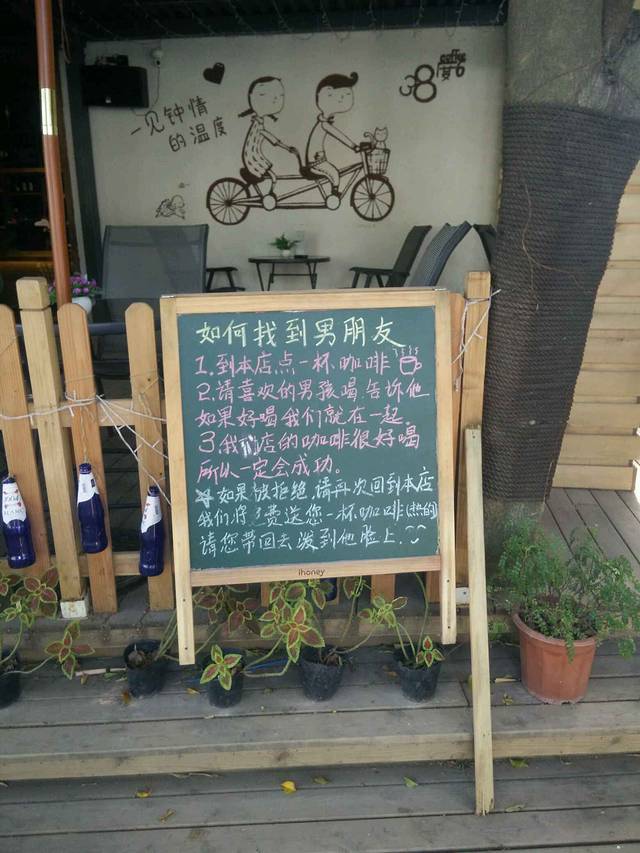 一见钟情
的温度
38
度
如何找到男朋友
1.到本店点一杯咖啡
2.请喜欢的男孩喝,告诉他
如果好喝我们就在一起.
3.我们店的咖啡很好喝
所以一定会成功。
如果被拒绝,请再次回到本店
我们将免费送您一杯咖啡(热的)
请您带回去泼到他脸上.
ihoney